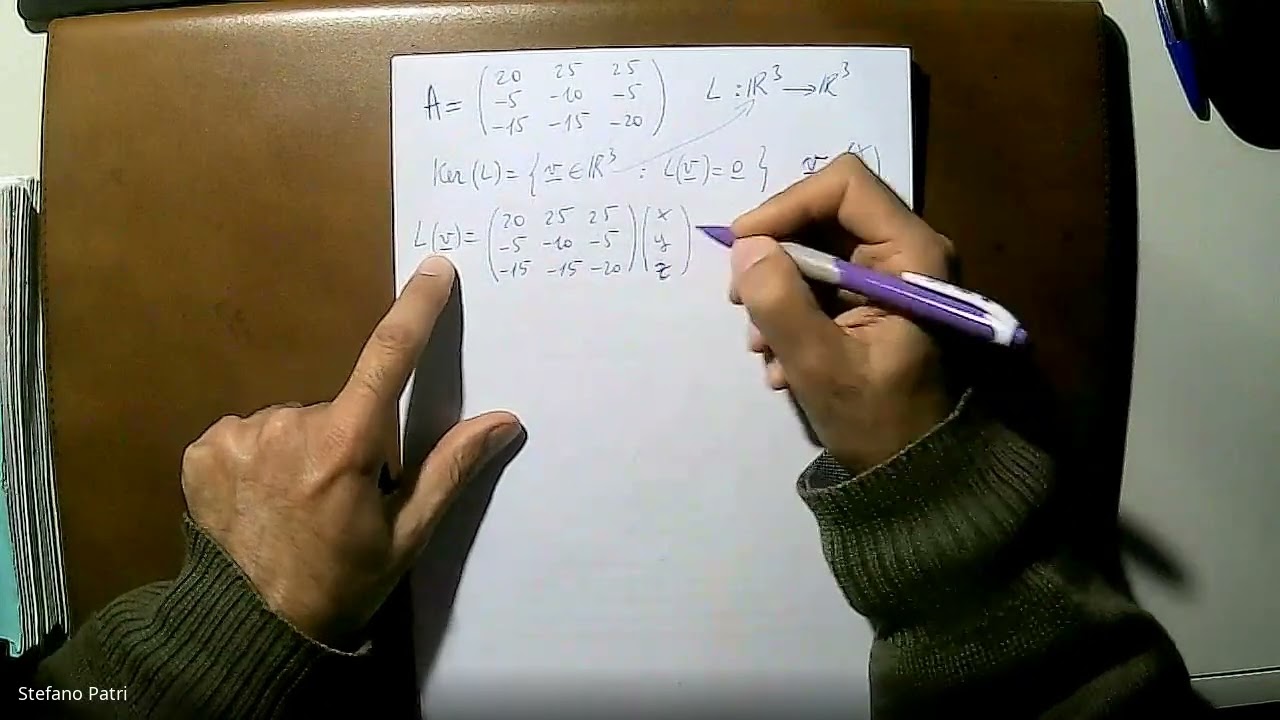 A = ( 20 25 25
-5 -10 -5
-15 -15 -20 ) L : ℝ³ → ℝ³
Ker (L) = { v ∈ ℝ³ : L(v) = 0 } v (x
L(v) = ( 20 25 25
-5 -10 -5
-15 -15 -20 ) ( x
y
z )
Stefano Patri